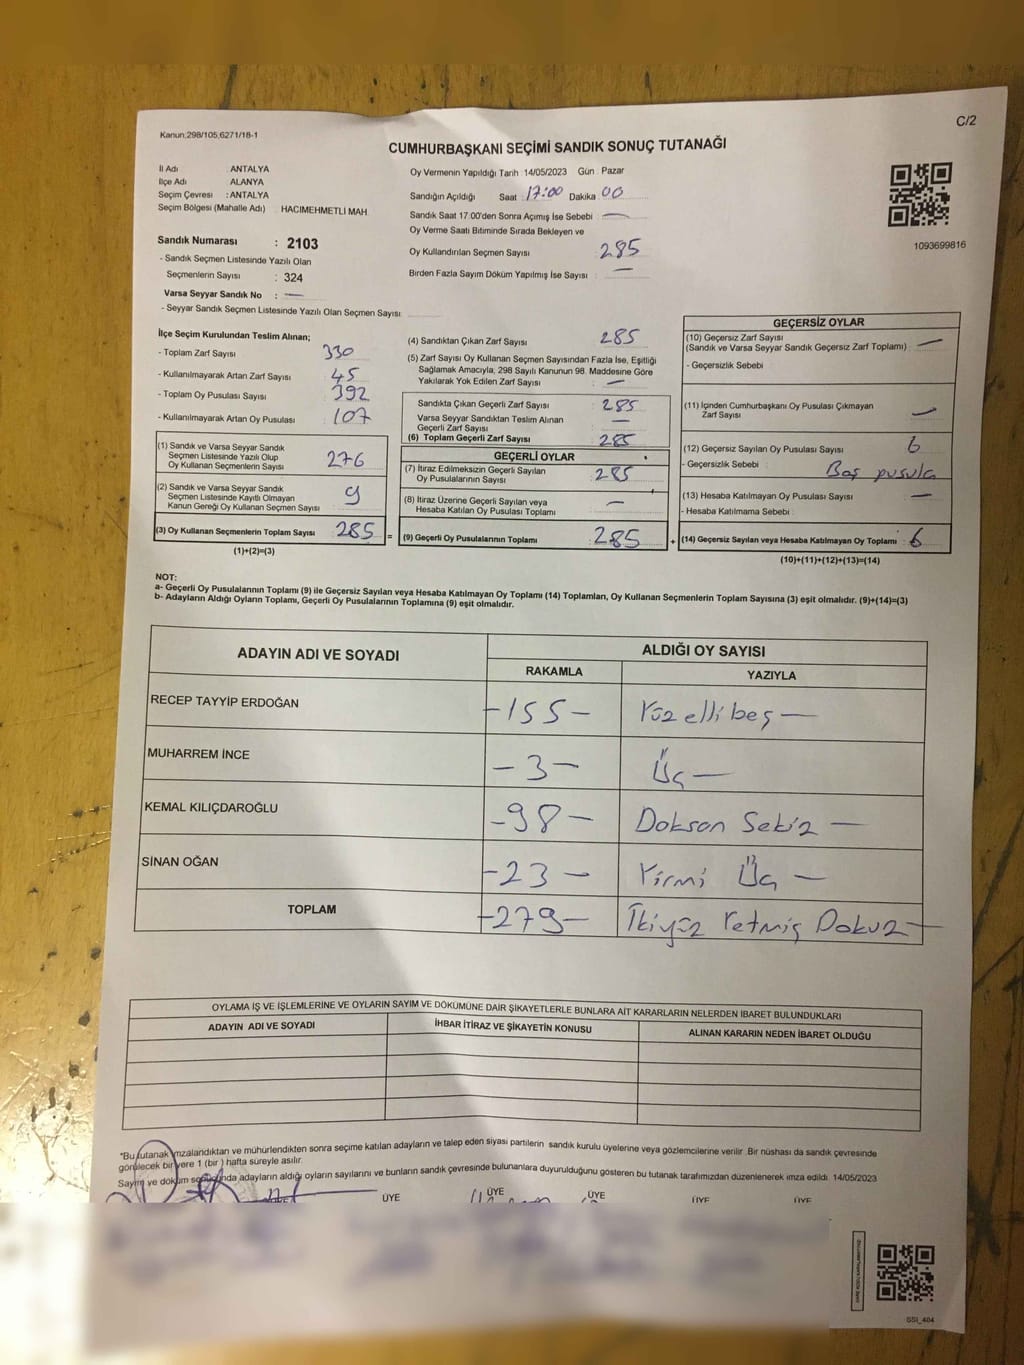 C/2
Kanun;298/105,6271/18-1
CUMHURBAŞKANI SEÇİMİ SANDIK SONUÇ TUTANAĞI
İl Adı : ANTALYA
İlçe Adı ALANYA
Seçim Çevresi : ANTALYA
Seçim Bölgesi (Mahalle Adı) HACIMEHMETLİ MAH
Sandık Numarası : 2103
- Sandık Seçmen Listesinde Yazılı Olan
Seçmenlerin Sayısı : 324
Varsa Seyyar Sandık No : —
- Seyyar Sandık Seçmen Listesinde Yazılı Olan Seçmen Sayısı:
Oy Vermenin Yapıldığı Tarih 14/05/2023 Gün : Pazar
Sandığın Açıldığı Saat : 17:00 Dakika 00
Sandık Saat 17.00'den Sonra Açımış İse Sebebi : —
Oy Verme Saati Bitiminde Sırada Bekleyen ve
Oy Kullandırılan Seçmen Sayısı : 285
Birden Fazla Sayım Döküm Yapılmış İse Sayısı : —
1093699816
İlçe Seçim Kurulundan Teslim Alınan;
- Toplam Zarf Sayısı 330
- Kullanılmayarak Artan Zarf Sayısı 45
- Toplam Oy Pusulası Sayısı 392
- Kullanılmayarak Artan Oy Pusulası 107
(1) Sandık ve Varsa Seyyar Sandık
Seçmen Listesinde Yazılı Olup
Oy Kullanan Seçmenlerin Sayısı 276
(2) Sandık ve Varsa Seyyar Sandık
Seçmen Listesinde Kayıtlı Olmayan
Kanun Gereği Oy Kullanan Seçmen Sayısı 9
(3) Oy Kullanan Seçmenlerin Toplam Sayısı 285 =
(1)+(2)=(3)
(4) Sandıktan Çıkan Zarf Sayısı : 285
(5) Zarf Sayısı Oy Kullanan Seçmen Sayısından Fazla İse, Eşitliği
Sağlamak Amacıyla, 298 Sayılı Kanunun 98. Maddesine Göre
Yakılarak Yok Edilen Zarf Sayısı : —
Sandıkta Çıkan Geçerli Zarf Sayısı : 285
Varsa Seyyar Sandıktan Teslim Alınan
Geçerli Zarf Sayısı : —
(6) Toplam Geçerli Zarf Sayısı : 285
GEÇERLİ OYLAR
(7) İtiraz Edilmeksizin Geçerli Sayılan
Oy Pusulalarının Sayısı : 285
(8) İtiraz Üzerine Geçerli Sayılan veya
Hesaba Katılan Oy Pusulası Toplamı : —
(9) Geçerli Oy Pusulalarının Toplamı : 285 +
GEÇERSİZ OYLAR
(10) Geçersiz Zarf Sayısı
(Sandık ve Varsa Seyyar Sandık Geçersiz Zarf Toplamı) : —
- Geçersizlik Sebebi :
(11) İçinden Cumhurbaşkanı Oy Pusulası Çıkmayan
Zarf Sayısı : —
(12) Geçersiz Sayılan Oy Pusulası Sayısı : 6
- Geçersizlik Sebebi : Boş pusula
(13) Hesaba Katılmayan Oy Pusulası Sayısı : —
- Hesaba Katılmama Sebebi :
(14) Geçersiz Sayılan veya Hesaba Katılmayan Oy Toplamı : 6
(10)+(11)+(12)+(13)=(14)
NOT:
a- Geçerli Oy Pusulalarının Toplamı (9) ile Geçersiz Sayılan veya Hesaba Katılmayan Oy Toplamı (14) Toplamları, Oy Kullanan Seçmenlerin Toplam Sayısına (3) eşit olmalıdır. (9)+(14)=(3)
b- Adayların Aldığı Oyların Toplamı, Geçerli Oy Pusulalarının Toplamına (9) eşit olmalıdır.
ADAYIN ADI VE SOYADI ALDIĞI OY SAYISI
RAKAMLA YAZIYLA
RECEP TAYYİP ERDOĞAN -155- Yüz elli beş —
MUHARREM İNCE -3- Üç —
KEMAL KILIÇDAROĞLU -98- Doksan Sekiz —
SİNAN OĞAN -23- Yirmi Üç —
TOPLAM -279- İkiyüz Yetmiş Dokuz —
OYLAMA İŞ VE İŞLEMLERİNE VE OYLARIN SAYIM VE DÖKÜMÜNE DAİR ŞİKAYETLERLE BUNLARA AİT KARARLARIN NELERDEN İBARET BULUNDUKLARI
ADAYIN ADI VE SOYADI İHBAR İTİRAZ VE ŞİKAYETİN KONUSU ALINAN KARARIN NEDEN İBARET OLDUĞU
*Bu tutanak imzalandıktan ve mühürlendikten sonra seçime katılan adayların ve talep eden siyasi partilerin sandık kurulu üyelerine veya gözlemcilerine verilir .Bir nüshası da sandık çevresinde
görülecek bir yere 1 (bir ) hafta süreyle asılır.
Sayım ve döküm sonucunda adayların aldığı oyların sayılarını ve bunların sandık çevresinde bulunanlara duyurulduğunu gösteren bu tutanak tarafımızdan düzenlenerek imza edildi. 14/05/2023
ÜYE ÜYE ÜYE ÜYE ÜYE
SSI_404